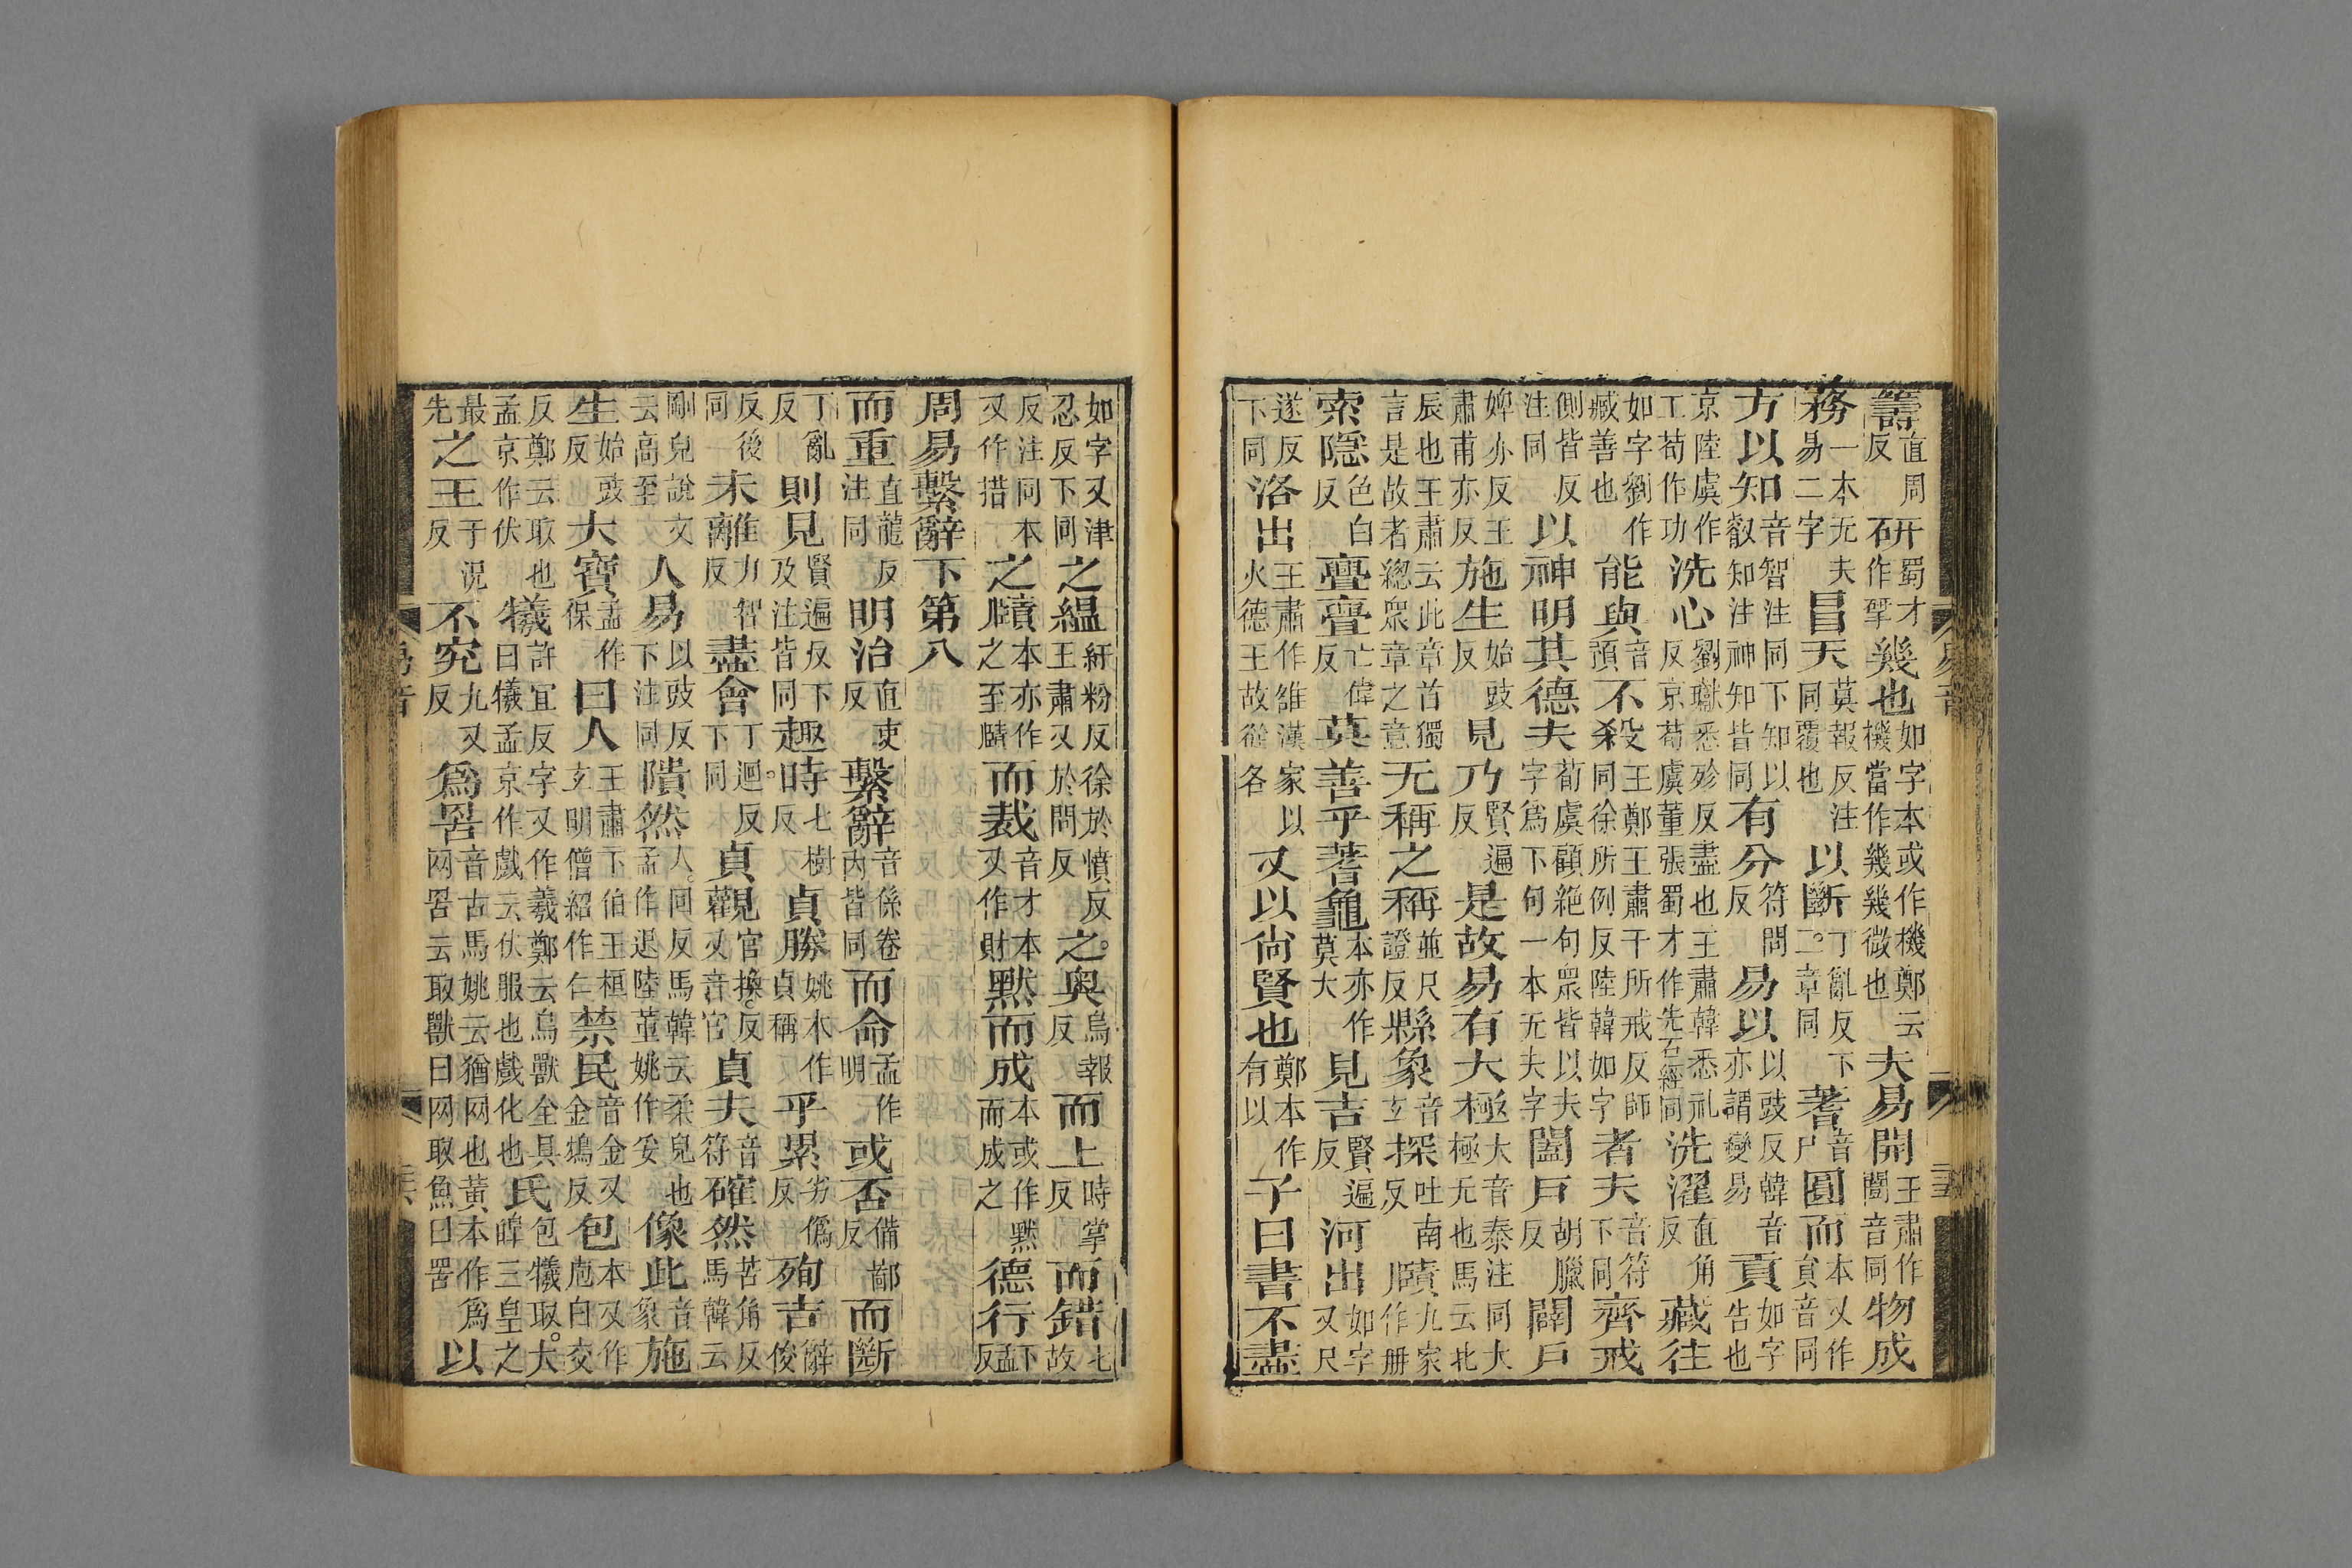 籌直周反研蜀才作揅幾也如字本或作機鄭云機當作幾幾微也夫易開王肅作闓音同物成
務一本无夫易二字冒天莫報反注同覆也以斷丁亂反下二章同蓍音尸圓而本又作員音同
方以知音智注同下知以叡知注神知皆同有分符問反易以以豉反韓音亦謂變易貢如字告也
京陸虞作工荀作功洗心劉瓛悉殄反盡也王肅韓悉礼反京荀虞董張蜀才作先石經同洗濯直角反藏往
如字劉作臧善也能與音預不殺王鄭王肅干所戒反師同徐所例反陸韓如字者夫音符下同齊戒
側皆反注同以神明其德夫荀虞顧絶句眾皆以夫字爲下句一本无夫字闔戶胡臘反闢戶
婢亦反王肅甫亦反施生始豉反見乃賢遍反是故易有大極大音泰注同大極无也馬云北
辰也王肅云此章首獨言是故者總眾章之意无稱之稱並尺證反縣象音玄探吐南反賾九家作册
索隱色白反亹亹亡偉反莫善乎蓍龜本亦作莫大見吉賢遍反河出如字又尺
遂反下同洛出王肅作雒漢家以火德王故從各又以尚賢也鄭本作有以子曰書不盡
如字又津忍反下同之緼紆粉反徐於憤反王肅又於問反之奧烏報反而上時掌反而錯七故
反注同本又作措之賾本亦作之至賾而裁音才本又作財默而成本或作默而成之德行下孟反
周易繫辭下第八
而重直龍反注同明治直吏反繫辭音係卷内皆同而命孟作明或否備鄙反而斷
丁亂反則見賢遍反下及注皆同趣時七樹反貞勝姚本作貞稱乎累劣僞反殉吉辭俊
反後同未離力智反盡會丁迴反下同貞觀官換反又音官貞夫音符確然苦角反馬韓云
剛皃說文云高至人易以豉反下注同隤然人回反馬韓云柔皃也孟作退陸董姚作妥像此音象施
生始豉反大寶孟作保曰人王肅卞伯王桓玄明僧紹作仁禁民音金又金鴆反包本又作庖白交
反鄭云取也孟京作伏犧許宜反字又作羲鄭云鳥獸全具曰犧孟京作戲云伏服也戲化也氏包犧取大皥三皇之
最先之王于況反不究九又反爲罟音古馬姚云猶网也黃本作爲网罟云取獸曰网取魚曰罟以